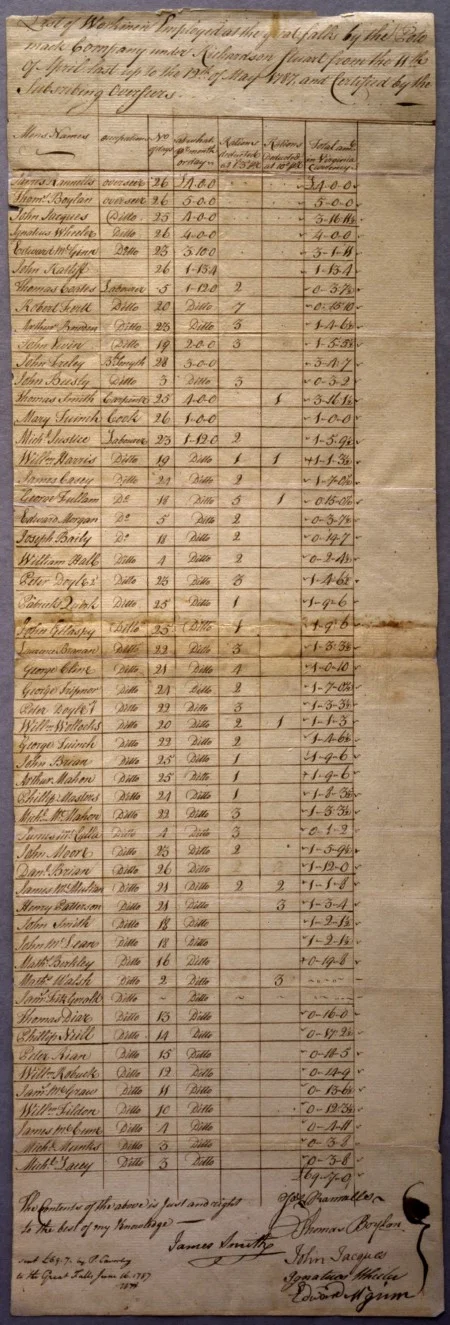 List of Workmen Employed at the great falls by the Poto
mack Company under Richardson Stuart from the 11th
of April last up to the 12th of May 1787, and Certified by the
Subscribing Overseers.
Mens Names occupation No of days month or day Rations deducted Rations deducted Total amt in Virginia Currency
James overseer 26 £4-0-0 £4-0-0
Thoms Boylan overseer 26 5-0-0 5-0-0
John Jacques Ditto 25 4-0-0 3-16-11
Ignatius Wheeler Ditto 26 4-0-0 4-0-0
Edward McGinn Ditto 23 3-10-0 3-1-11
John Ratliff 26 1-13-4 1-13-4
Thomas Labourer 5 1-12-0 2 0-3-7½
Robert Ditto 20 Ditto 7 0-15-10
Arthur Bowden Ditto 23 Ditto 3 1-4-6½
John Ditto 19 2-0-0 3 1-5-5½
John Bsmyth 28 3-0-0 3-4-7
John Beesly Ditto 3 Ditto 3 0-3-2
Thomas Smith Carpintr 25 4-0-0 1 3-16-1½
Mary Cook 26 1-0-0 1-0-0
Michl Justice Labourer 23 1-12-0 2 1-5-9½
Willm Harris Ditto 19 Ditto 1 1 1-1-3½
James Casey Ditto 24 Ditto 2 1-7-0½
George Fullam Do 18 Ditto 5 1 0-15-0½
Edward Morgan Do 5 Ditto 2 0-3-7½
Joseph Baily Do 18 Ditto 2 0-19-7
William Hall Ditto 4 Ditto 2 0-2-4½
Peter Doyle Ditto 23 Ditto 3 1-4-6½
Patrick Quink Ditto 25 Ditto 1 1-9-6
John Gillaspy Ditto 25 Ditto 1 1-9-6
Laurence Ditto 22 Ditto 3 1-3-3½
George Cline Ditto 21 Ditto 4 1-0-10
George Ditto 24 Ditto 2 1-7-0½
Peter Doyle Ditto 22 Ditto 3 1-3-3½
Willm Ditto 20 Ditto 2 1 1-1-3
George Ditto 22 Ditto 2 1-4-6½
John Brian Ditto 25 Ditto 1 1-9-6
Arthur Mahon Ditto 25 Ditto 1 1-9-6
Phillip Masters Ditto 24 Ditto 1 1-8-3½
Michl McMahon Ditto 22 Ditto 3 1-3-3½
James Ditto 4 Ditto 3 0-1-2
John Moore Ditto 23 Ditto 2 1-5-9½
Danl Brian Ditto 26 Ditto 1-12-0
James Ditto 21 Ditto 2 2 1-1-8
Henry Patterson Ditto 21 Ditto 3 1-3-4
John Smith Ditto 18 Ditto 1-2-1½
John McLean Ditto 18 Ditto 1-2-1½
Mathw Berkley Ditto 16 Ditto 0-19-8
Walsh Ditto 2 Ditto 3
Jams FitzGerald Ditto Ditto
Thomas Diar Ditto 13 Ditto 0-16-0
Phillip Neill Ditto 14 Ditto 0-17-2½
Peter Rian Ditto 15 Ditto 0-18-5
Willm Robuck Ditto 12 Ditto 0-14-9
Jams McGraw Ditto 11 Ditto 0-13-6½
Willm Ditto 10 Ditto 0-12-3½
James Ditto 4 Ditto 0-4-11
Michl Munks Ditto 3 Ditto 0-3-8
Michl Lacey Ditto 3 Ditto 0-3-8
£69-7-9
The Contents of the above is Just and right
to the best of my Knowledge —
James Smith
Thomas Boylan
John Jacques
Ignatius Wheeler
Edward McGinn
to the Great Falls June 16 1787